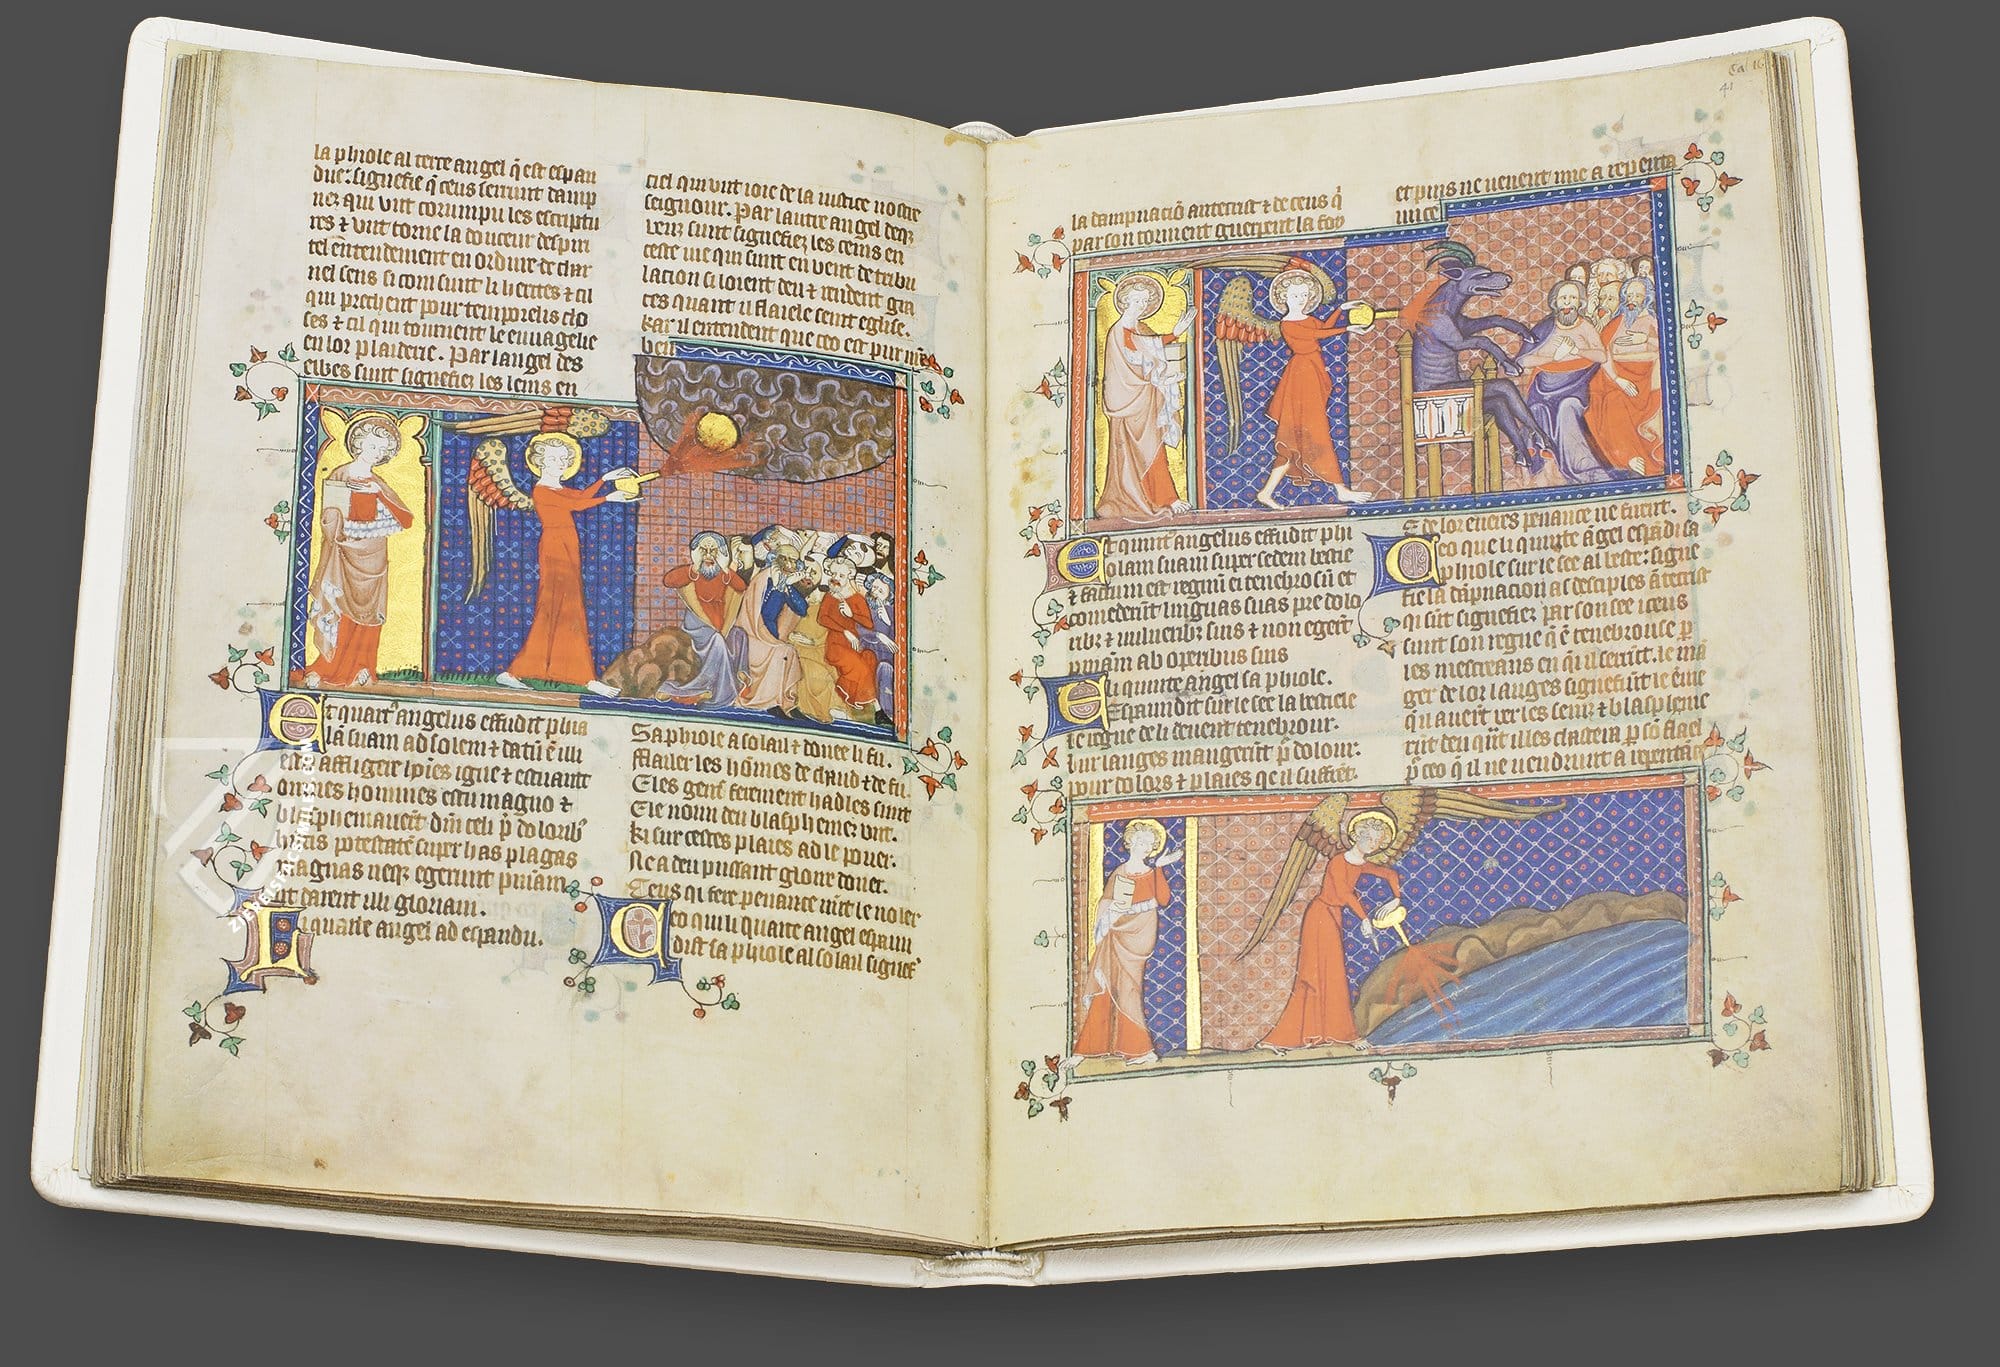 la phiole al terre angel q̄ est espan
due: signefie q̄ ceus serrunt damp
nez qui vnt corumpu les escriptu
res & vnt torne la douceur despiri
tel entendement en ordure de char
nel sens si com sunt li herites & cil
qui prechent pour temporelis cho
ses & cil qui tournent le euuagelie
en lor plaiderie. Par langel des
eiwes sunt signefiez les seins en
ciel qui vnt ioie de la iustice nostre
seignour. Par lautre angel desq̄
veuz sunt signefiez les seins en
ceste uie qui sunt en vent de tribu
lacion si loient deu & rendent gra
ces quant il flaiele seint eglise.
kar il entendent que ceo est pur
ben
Et quart' angelus effudit phia
lā suam ad solem & datū ē illi
estu affligere hoīes igne & estuante
omnes homines estu magno &
blasphemauerūt dm̄ celi p̄ dolorib'
hntis potestatē super has plagas
magnas neq̄ egerunt pniam
ut darent illi gloriam.
Li quarte angel ad espandu.
Sa phiole a solail & donee li fu.
Flailer les hōmes de chaud & de fu.
E les gent forement hadles sunt
E le noun deu blasphemez vnt.
Ki sur cestes plaies ad le pouer.
Ne a deu puissant gloire doner.
Ceus qi fere penance nūt le noler
Ceo qui li quarte angel espaun
dist sa phiole al solail signef'
Ca 16
41
la dampnaciō antecrist & de ceus q̄
par son torment guerpent la foy
et puis ne uenent mie a repenta
unce
Et quint' angelus effudit phi
olam suam super sedem bestie
& factum est regnū ei tenebrosū et
comederūt linguas suas pre dolo
ribz & uulneribz suis & non egerūt
pniām ab operibus suis
Li quinte angel sa phiole.
Espaundit sur le see la besticle
le regne de li deuent tenebrour.
lur langes mangerūt p̄ dolour.
pour dolors & plaies qe il suffrēt.
E de lor eueries penance ne firent.
Ceo que li quinte āgel espādi sa
phiole sur le see al beste: signe
fie la dāpnacion as desciples āntecrist
qi sūt signefiez par son see iceus
sunt son regne q̄ ē tenebrouse p̄
les mescreans en qi il serrūt. le mā
ger de lor langes signefiūt le ēuie
q̄ il auerūt uer les seinz & blaspheme
rūt deu qn̄t il les chastera p̄ sō flael
p̄ ceo q̄ il ne uendrunt a repentāce
ZIEREIS FACSIMILES.COM